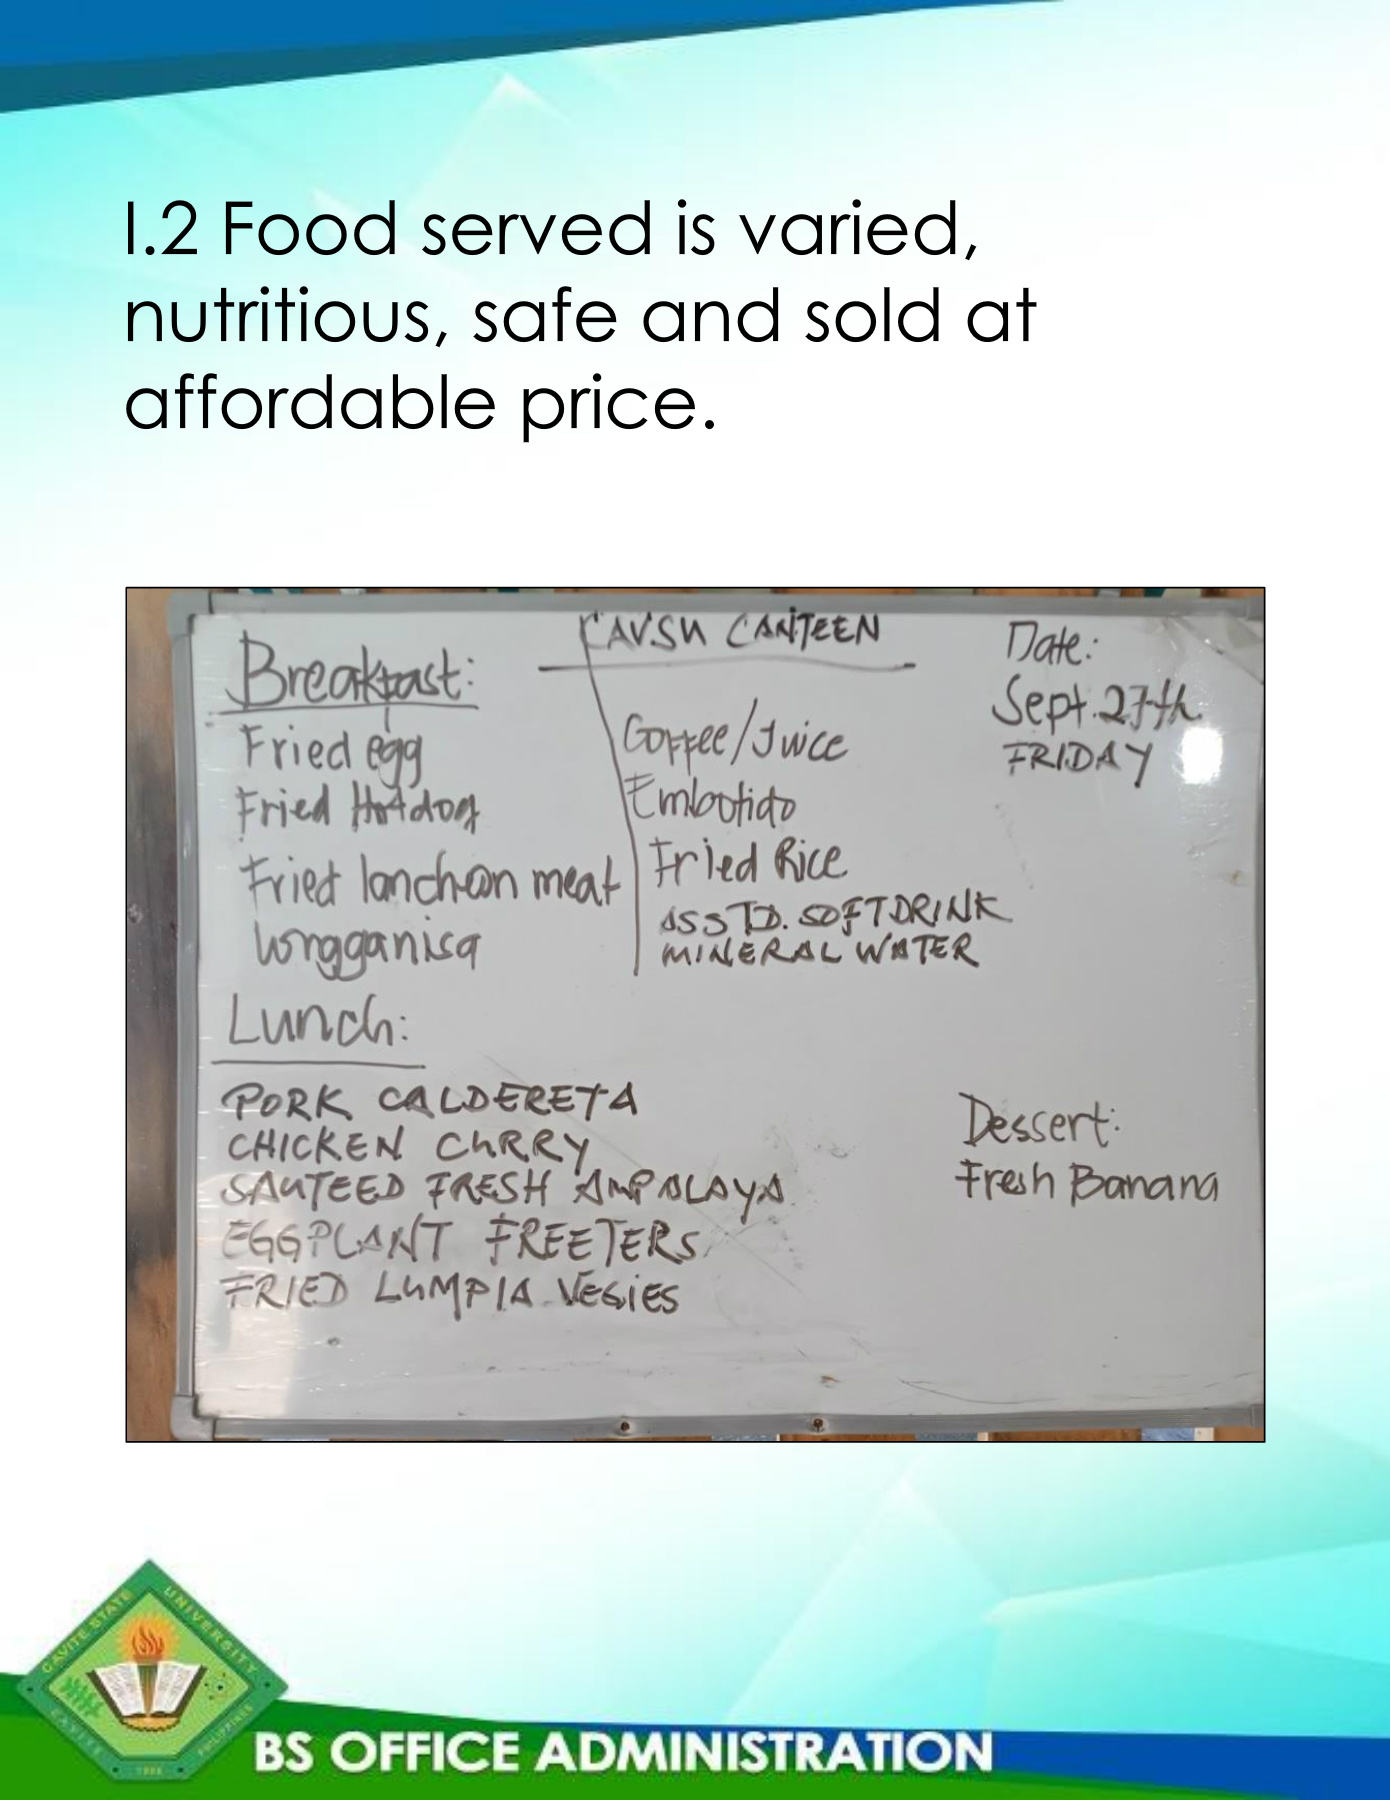 I.2 Food served is varied,
nutritious, safe and sold at
affordable price.
CAVSU CANTEEN
Date:
Sept. 27th
FRIDAY
Breakfast:
Fried egg
Fried Hotdog
Fried lancheon meat
longganisa
Coffee/Juice
Embotido
Fried Rice
ASSTD. SOFTDRINK
MINERAL WATER
Lunch:
PORK CALDERETA
CHICKEN CURRY
SAUTEED FRESH AMPALAYA
EGGPLANT FREETERS
FRIED LUMPIA VEGIES
Dessert:
Fresh Banana
CAVITE STATE UNIVERSITY
CAVITE PHILIPPINES
1906
BS OFFICE ADMINISTRATION